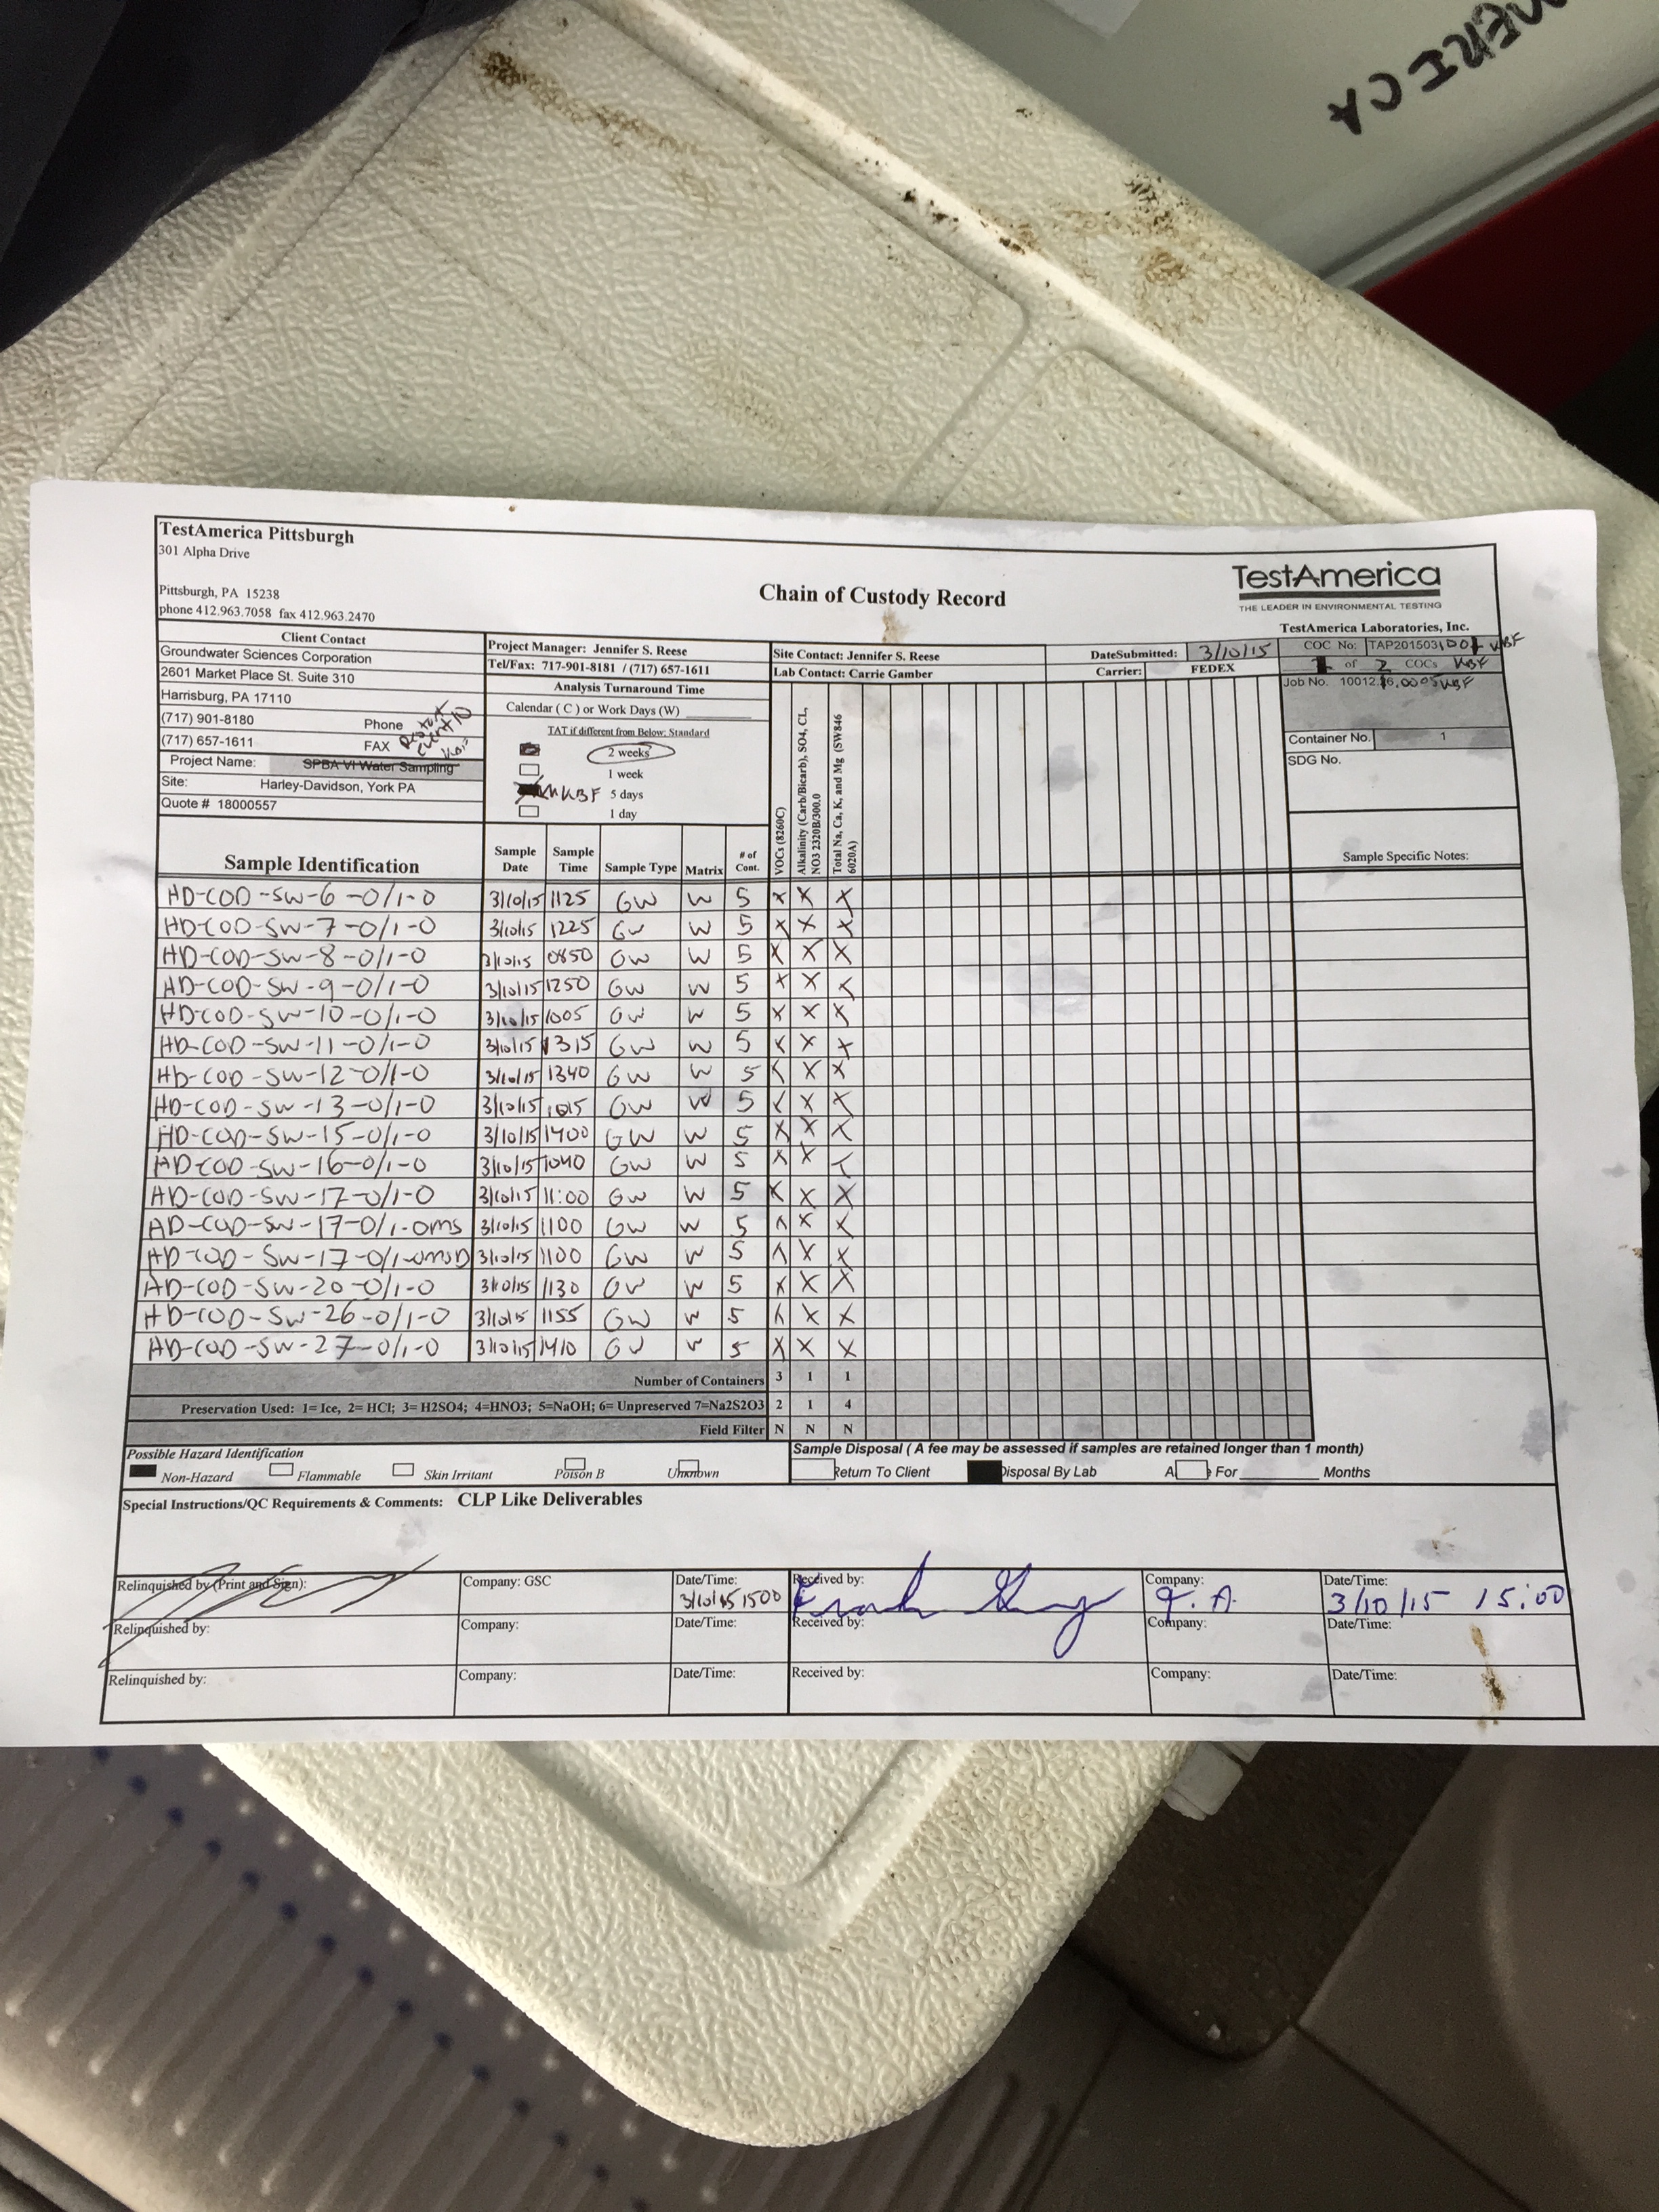 AMERICA
TestAmerica Pittsburgh
301 Alpha Drive
Pittsburgh, PA 15238
phone 412.963.7058 fax 412.963.2470
Chain of Custody Record
TestAmerica
THE LEADER IN ENVIRONMENTAL TESTING
TestAmerica Laboratories, Inc.
Client Contact
Groundwater Sciences Corporation
2601 Market Place St. Suite 310
Harrisburg, PA 17110
(717) 901-8180 Phone
(717) 657-1611 FAX
Project Name: SPBA VI Water Sampling
Site: Harley-Davidson, York PA
Quote # 18000557
Project Manager: Jennifer S. Reese
Tel/Fax: 717-901-8181 / (717) 657-1611
Analysis Turnaround Time
Calendar ( C ) or Work Days (W)
TAT if different from Below: Standard
2 weeks
1 week
KBF 5 days
1 day
Site Contact: Jennifer S. Reese
Lab Contact: Carrie Gamber
DateSubmitted: 3/10/15
Carrier: FEDEX
COC No: TAP201503 KBF
of 2 COCs KBF
Job No. 10012. KBF
Container No. 1
SDG No.
Sample Identification
Sample Date
Sample Time
Sample Type
Matrix
# of Cont.
VOCs (8260C)
Alkalinity (Carb/Bicarb), SO4, CL, NO3 2320B/300.0
Total Na, Ca, K, and Mg (SW846 6020A)
Sample Specific Notes:
HD-COD-SW-6-0/1-0 3/10/15 1125 GW W 5 X X X
HD-COD-SW-7-0/1-0 3/10/15 1225 GW W 5 X X X
HD-COD-SW-8-0/1-0 3/10/15 0850 GW W 5 X X X
HD-COD-SW-9-0/1-0 3/10/15 1250 GW W 5 X X X
HD-COD-SW-10-0/1-0 3/10/15 1005 GW W 5 X X X
HD-COD-SW-11-0/1-0 3/10/15 1315 GW W 5 X X X
HD-COD-SW-12-0/1-0 3/10/15 1340 GW W 5 X X X
HD-COD-SW-13-0/1-0 3/10/15 1015 GW W 5 X X X
HD-COD-SW-15-0/1-0 3/10/15 1400 GW W 5 X X X
HD-COD-SW-16-0/1-0 3/10/15 1040 GW W 5 X X X
HD-COD-SW-17-0/1-0 3/10/15 11:00 GW W 5 X X X
HD-COD-SW-17-0/1-0MS 3/10/15 1100 GW W 5 X X X
HD-COD-SW-17-0/1-0MSD 3/10/15 1100 GW W 5 X X X
HD-COD-SW-20-0/1-0 3/10/15 1130 GW W 5 X X X
HD-COD-SW-26-0/1-0 3/10/15 1155 GW W 5 X X X
HD-COD-SW-27-0/1-0 3/10/15 1410 GW W 5 X X X
Number of Containers 3 1 1
Preservation Used: 1= Ice, 2= HCl; 3= H2SO4; 4=HNO3; 5=NaOH; 6= Unpreserved 7=Na2S2O3 2 1 4
Field Filter N N N
Possible Hazard Identification
Non-Hazard Flammable Skin Irritant Poison B Unknown
Sample Disposal ( A fee may be assessed if samples are retained longer than 1 month)
Return To Client Disposal By Lab For Months
Special Instructions/QC Requirements & Comments: CLP Like Deliverables
Relinquished by (Print and Sign): Company: GSC Date/Time: 3/10/15 1500 Received by: Company: T.A. Date/Time: 3/10/15 15:00
Relinquished by: Company: Date/Time: Received by: Company: Date/Time:
Relinquished by: Company: Date/Time: Received by: Company: Date/Time: